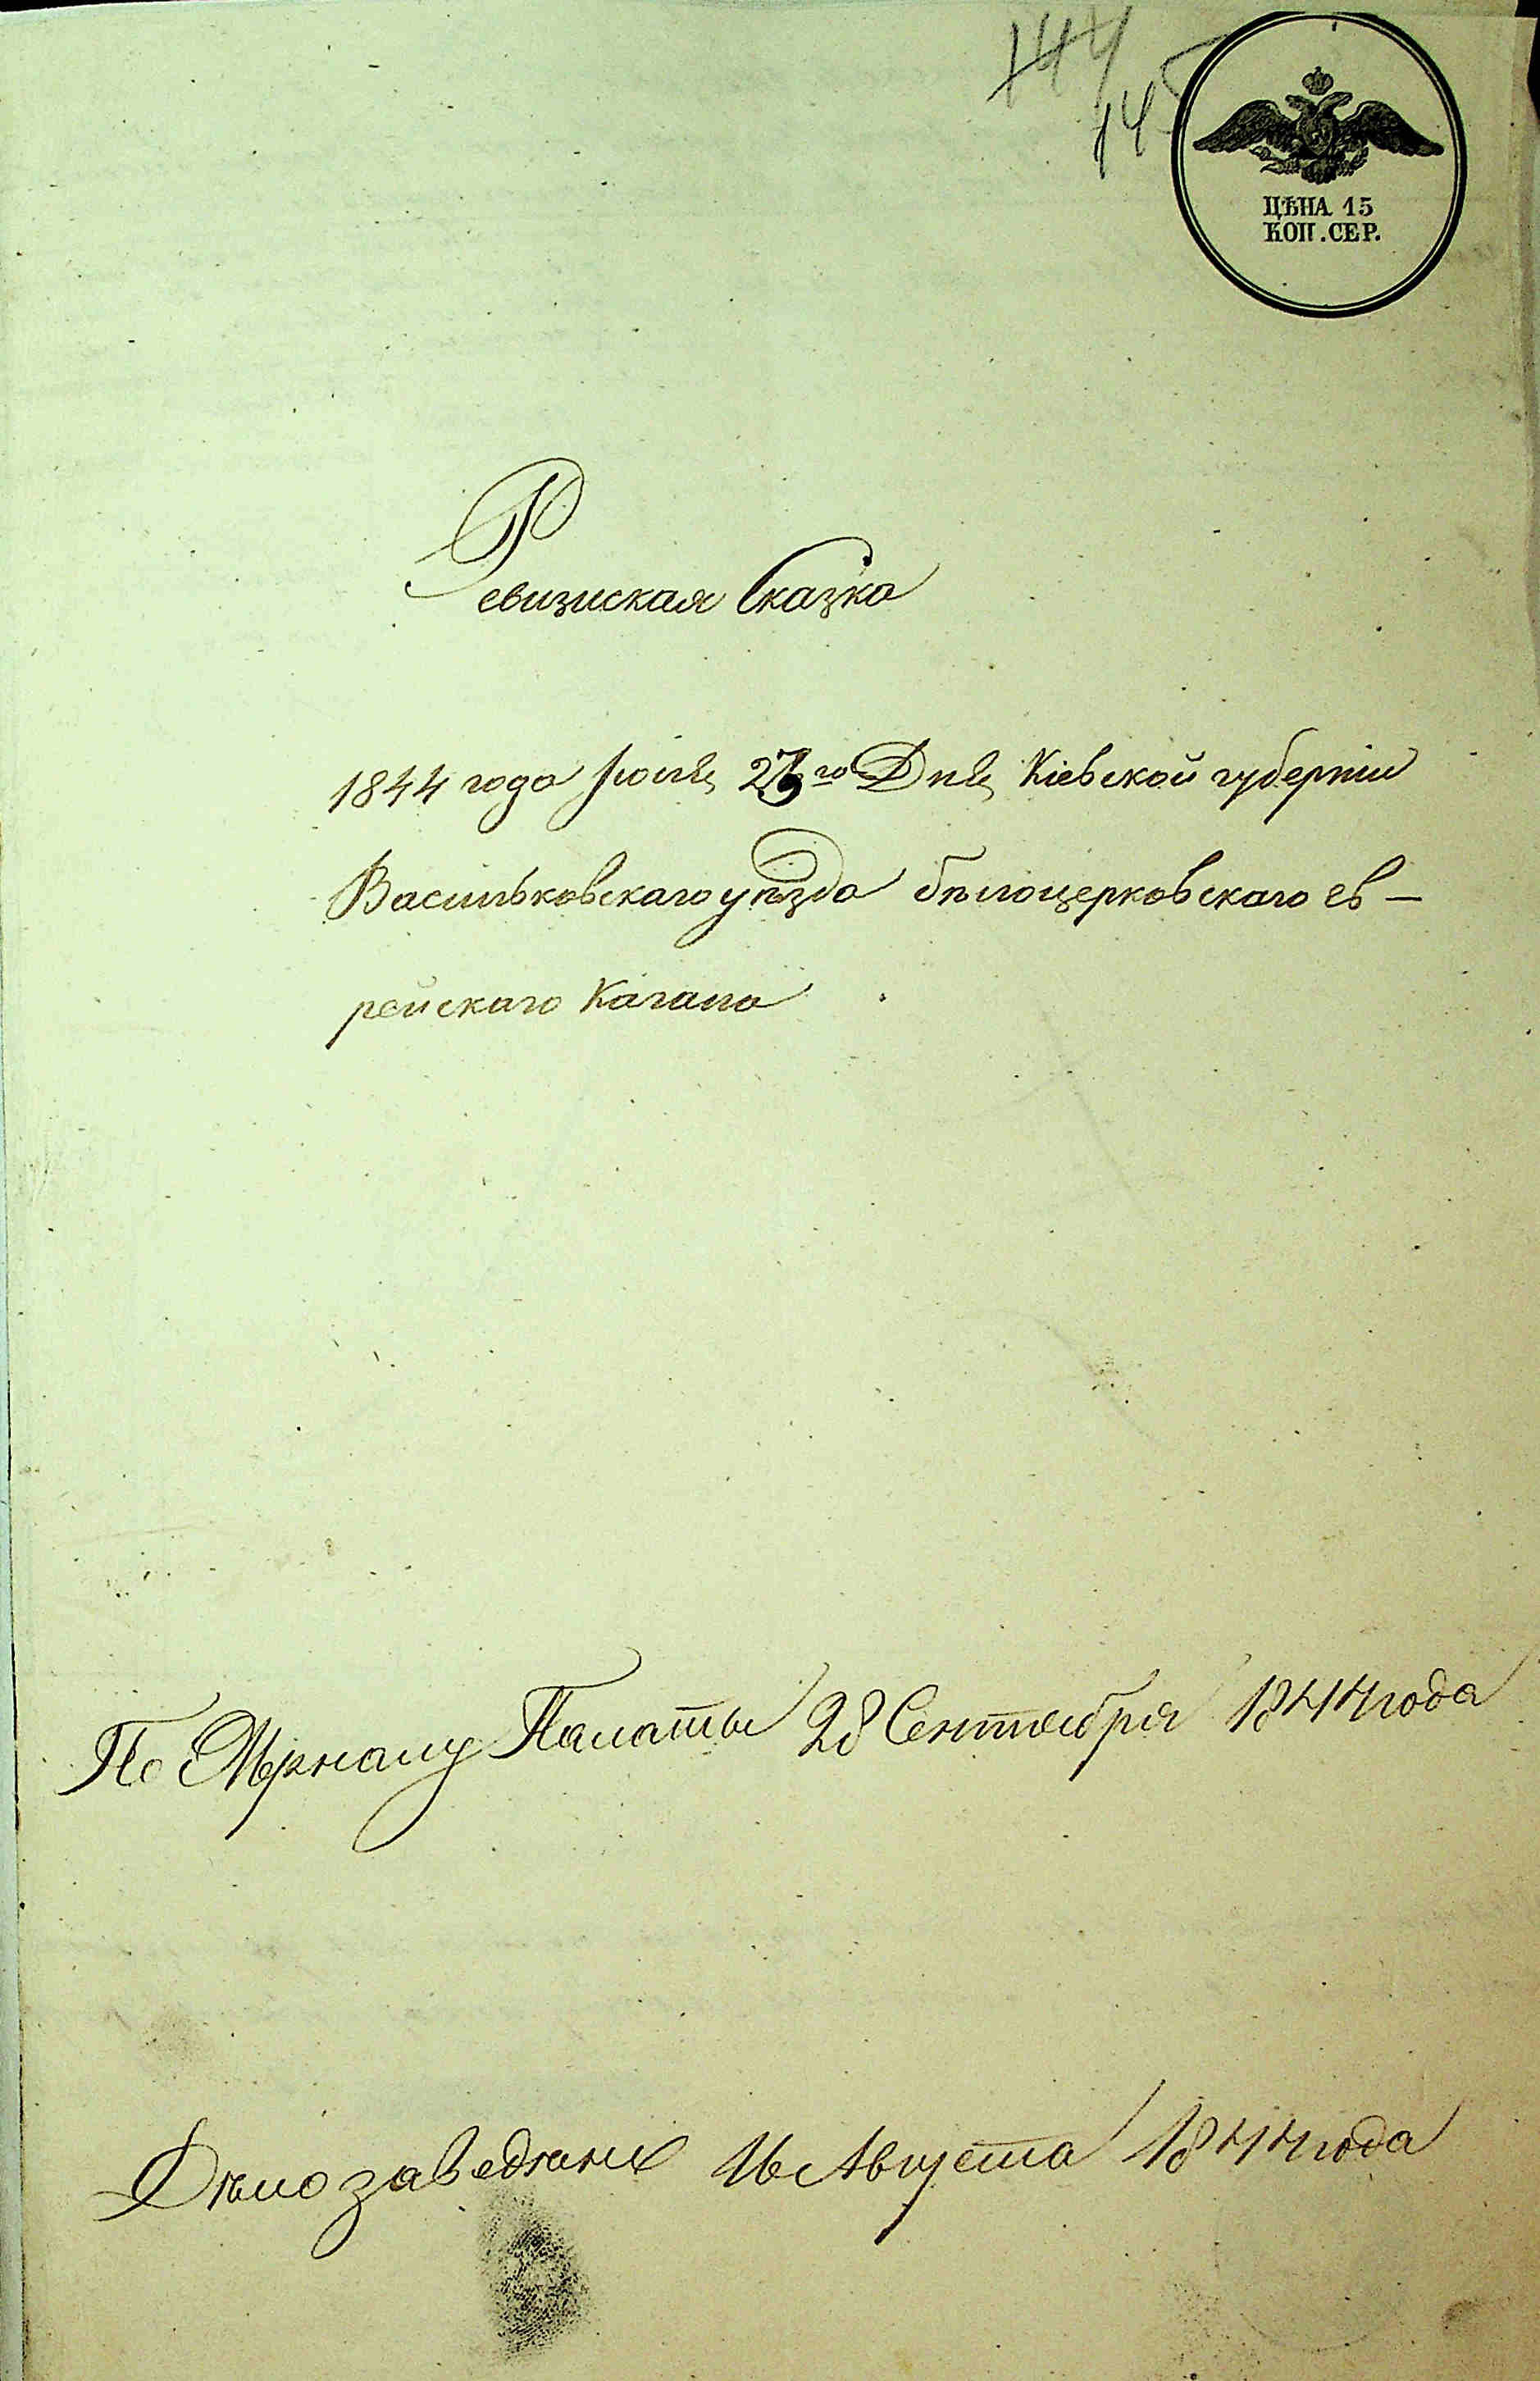 144
145
ЦѢНА 15
КОП. СЕР.
Ревизиская Сказка
1844 года Июля 23го Дня Кіевской губерніи
Васильковскаго уѣзда бѣлоцерковскаго ев-
рейскаго Кагала
По Палаты 28 Сентября 1844 года
Дѣло 16 Августа 1844 года